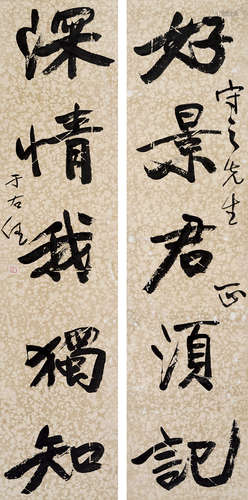 好景君須記
守之先生 正
深情我獨知
于右任